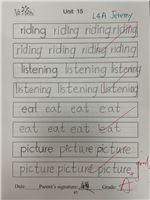 Unit 15 L4A Jeremy
riding riding riding riding
riding riding riding riding
listening listening listening
listening listening listening
eat eat eat eat
eat eat eat eat
picture picture picture
picture picture picture
good
Date: Parent's signature: Grade: A